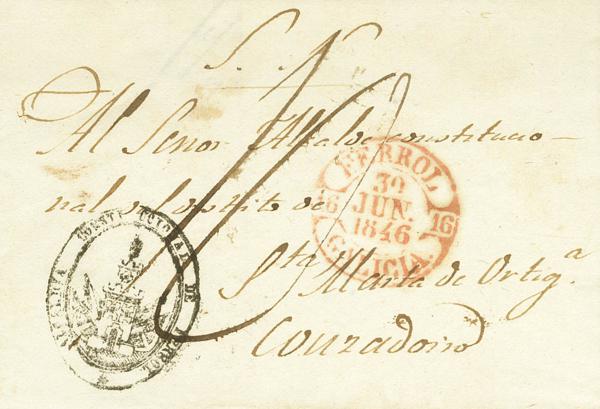 S. N.
Al Señor Alcalde constitucio-
nal del distrito de
Sta Marta de Ortigª.
Couzadoiro
FERROL
30
JUN.
1846
GALICIA.
16 16
ALCALDIA CONSTITUCIONAL DE FERROL